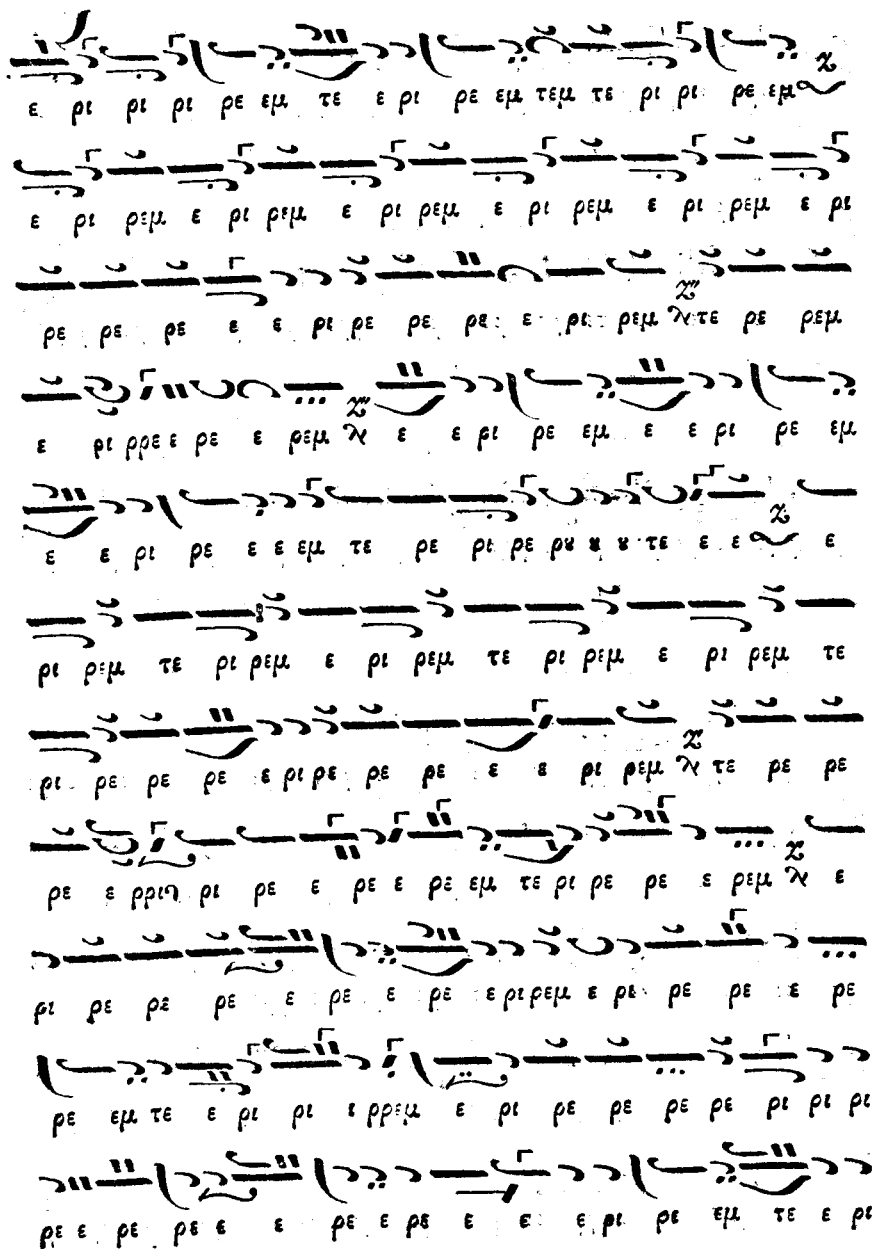 ε ρι ρι ρι ρε εμ τε ε ρι ρε εμ τεμ τε ρι ρι ρε εμ
ε ρι ρεμ ε ρι ρεμ ε ρι ρεμ ε ρι ρεμ ε ρι ρεμ ε ρι
ρε ρε ρε ε ε ρι ρε ρε ρε ε ρι ρεμ τε ρε ρεμ
ε ρι ρρε ε ρε ε ρεμ ε ε ρι ρε εμ ε ε ρι ρε εμ
ε ε ρι ρε ε ε εμ τε ρε ρι ρε ρȣ ȣ ȣ τε ε ε ε
ρι ρεμ τε ρι ρεμ ε ρι ρεμ τε ρι ρεμ ε ρι ρεμ τε
ρι ρε ρε ρε ε ρι ρε ρε ρε ε ε ρι ρεμ τε ρε ρε
ρε ε ρι ρε ε ρε ε ρε εμ τε ρι ρε ρε ε ρεμ ε
ρι ρε ρε ρε ε ρε ε ρε ε ρι ρεμ ε ρε ρε ρε ε ρε
ρε εμ τε ε ρι ρι ρρεμ ε ρι ρε ρε ρε ρε ρι ρι ρι
ρε ε ρε ρε ε ε ρε ε ρε ε ε ε ρι ρε εμ τε ε ρι